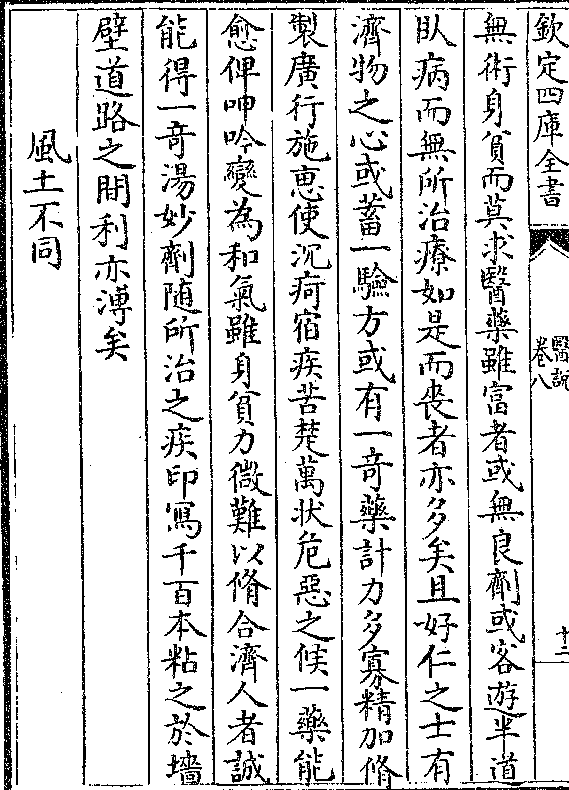 欽定四庫全書
醫說
卷八
十二
無術身貧而莫求醫藥雖富者或無良劑或客遊半道
臥病而無所治療如是而喪者亦多矣且好仁之士有
濟物之心或蓄一驗方或有一竒藥計力多寡精加脩
製廣行施恵使沉疴宿疾苦楚萬狀危惡之候一藥能
愈俾呻吟變為和氣雖身貧力微難以脩合濟人者誠
能得一竒湯妙劑随所治之疾印寫千百本粘之於墻
壁道路之間利亦溥矣
風土不同